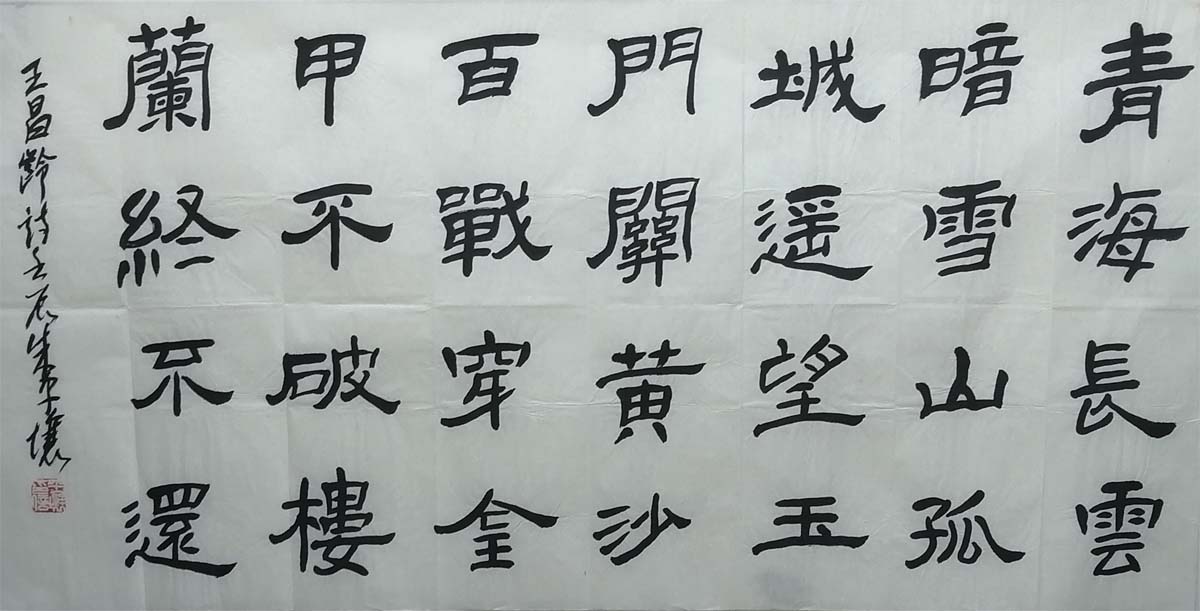 青海長雲
暗雪山孤
城遥望玉
門關黃沙
百戰穿金
甲不破樓
蘭終不還
王昌齡詩壬辰朱